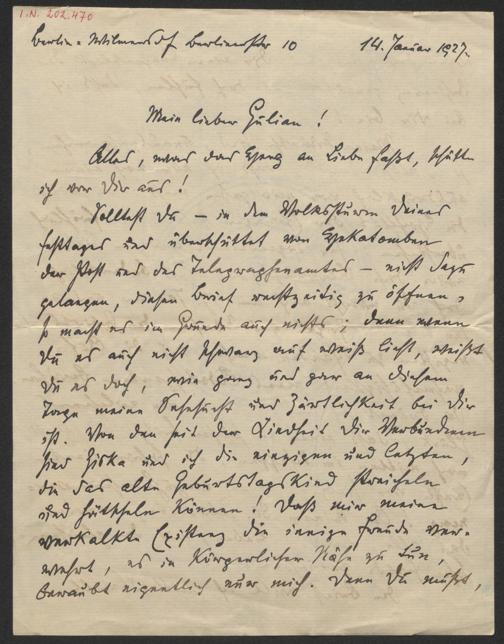 I.N. 202.470
Berlin-Wilmersdorf Berlinerstr 10 14. Januar 1927.
Mein lieber Gulian!
Alles, was das Herz an Liebe faßt, schütte
ich vor Dir aus!
Solltest Du – in dem Volkssturm Deines
Festtages und überschüttet von Hekatomben
der Post und des Telegraphenamtes – nicht dazu
gelangen, diesen Brief rechtzeitig zu öffnen,
so macht es im Grunde auch nichts; denn wenn
Du es auch nicht schwarz auf weiß liest, weißt
Du es doch, wie ganz und gar an diesem
Tage meine Sehnsucht und Zärtlichkeit bei Dir
ist. Von den seit der Kindheit Dir Verbündeten
sind Ziska und ich die einzigen und letzten,
die das alte Geburtstagskind streicheln
und hätscheln können! Daß mir meine
verkalkte Existenz die innige Freude ver-
wehrt, es in körperlicher Nähe zu tun,
beraubt eigentlich nur mich. Denn Du mußt,